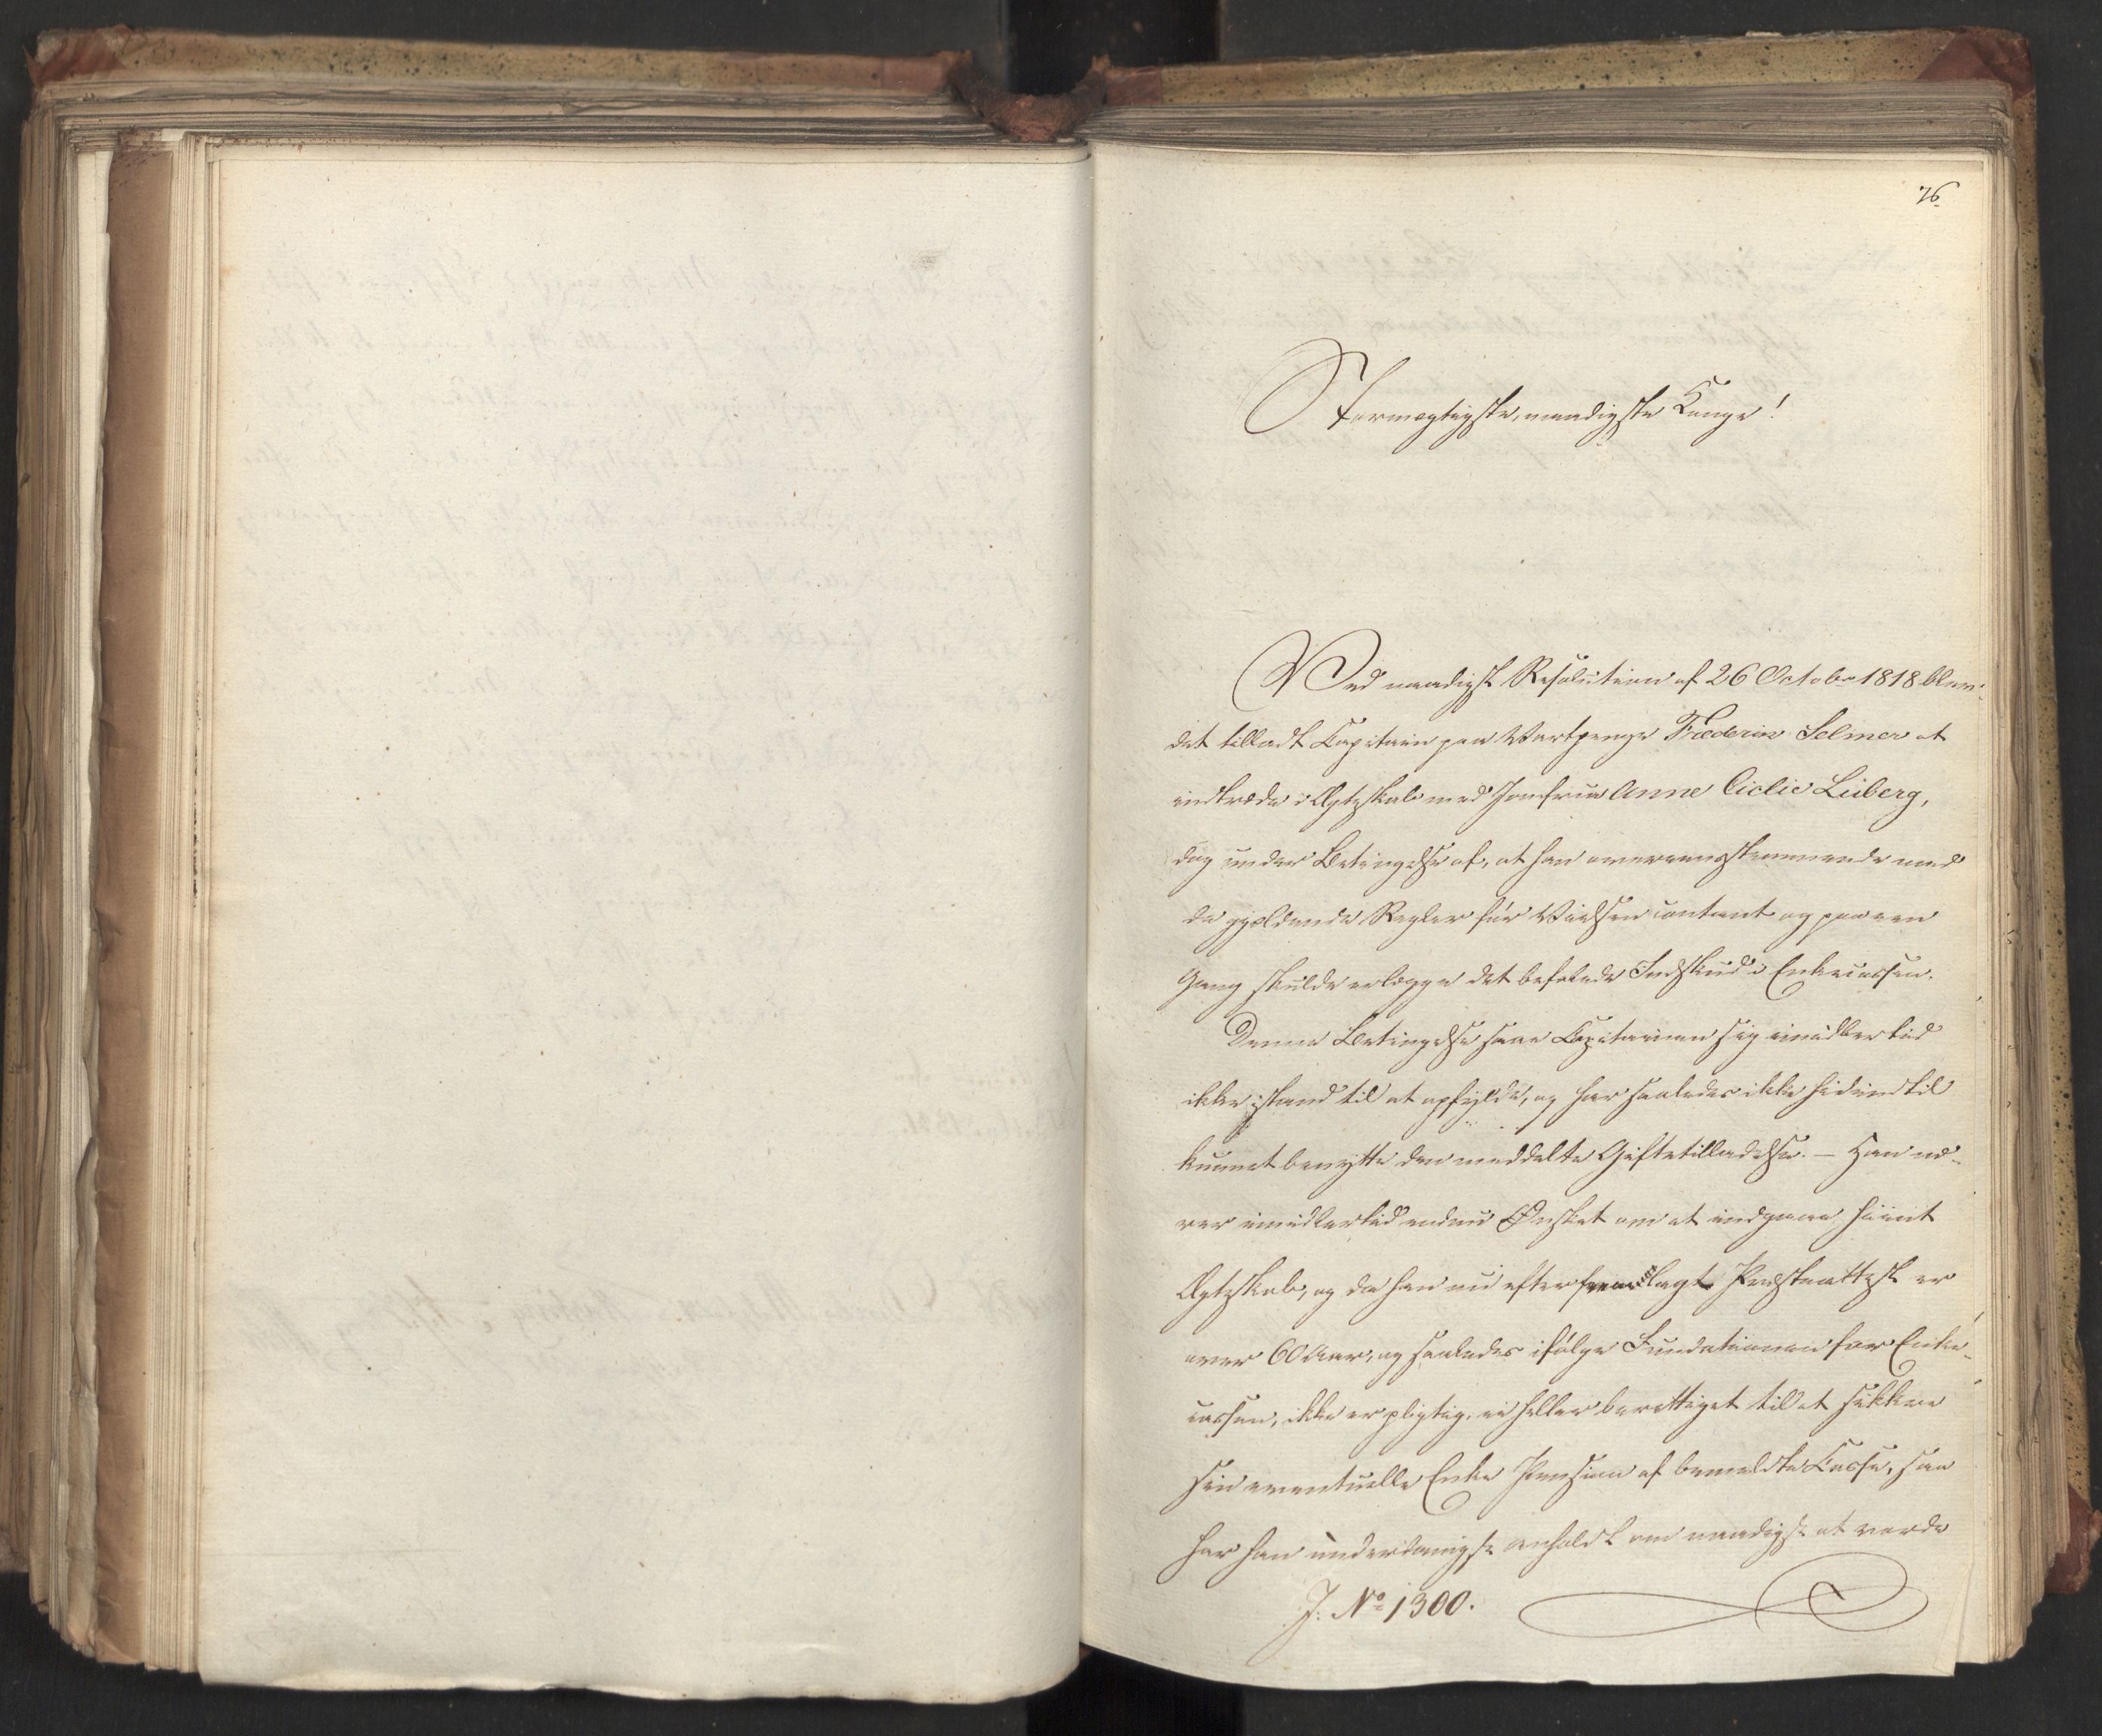 76.
Stormægtigste, naadigste Konge!
Ved naadigst Resolution af 26 Octobr 1818 blev
det tilladt Capitain paa Vartpenge Fræderic Selmer at
indtræde i Ægteskab med Jomfrue Anne Cicilie Liiberg,
dog under Betingelse af, at han overeensstemmende med
de gjældende Regler før Vielsen contant og paa een
Gang skulde erlægge det befalede Indskud i Enkecassen.
Denne Betingelse saae Capitainen sig imidlertid
ikke istand til at opfylde, og har saaledes ikke hidindtil
kunnet benytte den meddelte Giftetilladelse. — Han næ-
rer imidlertid endnu Ønsket om at indgaae hiint
Ægteskab, og da han nu efter fremlagt Præsteattest er
over 60 Aar, og saaledes ifølge Fundationen for Enke-
cassen, ikke er pligtig, ei heller berettiget til at sikkre
sin eventuelle Enke Pension af bemeldte Casse, saa
har han underdanigst anholdt om naadigst at vorde
J: No 1300.